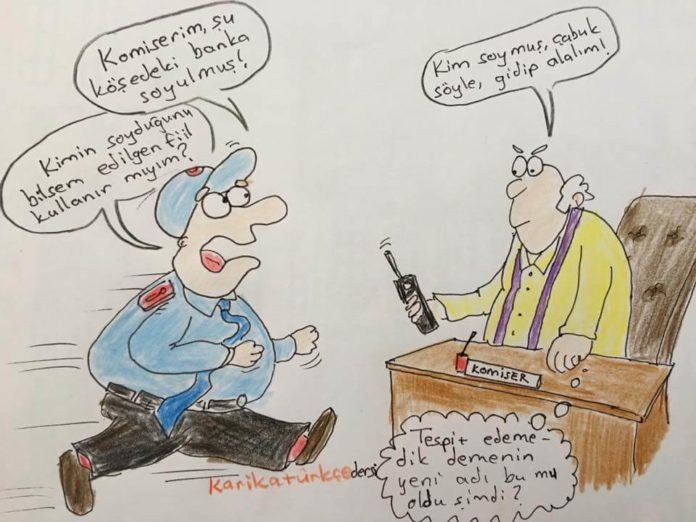 Komiserim, şu
köşedeki banka
soyulmuş!
Kim soymuş, çabuk
söyle, gidip alalım!
Kimin soyduğunu
bilsem edilgen fiil
kullanır mıyım?
KOMİSER
Tespit edeme-
dik demenin
yeni adı bu mu
oldu şimdi?
karikatürkçe dersi